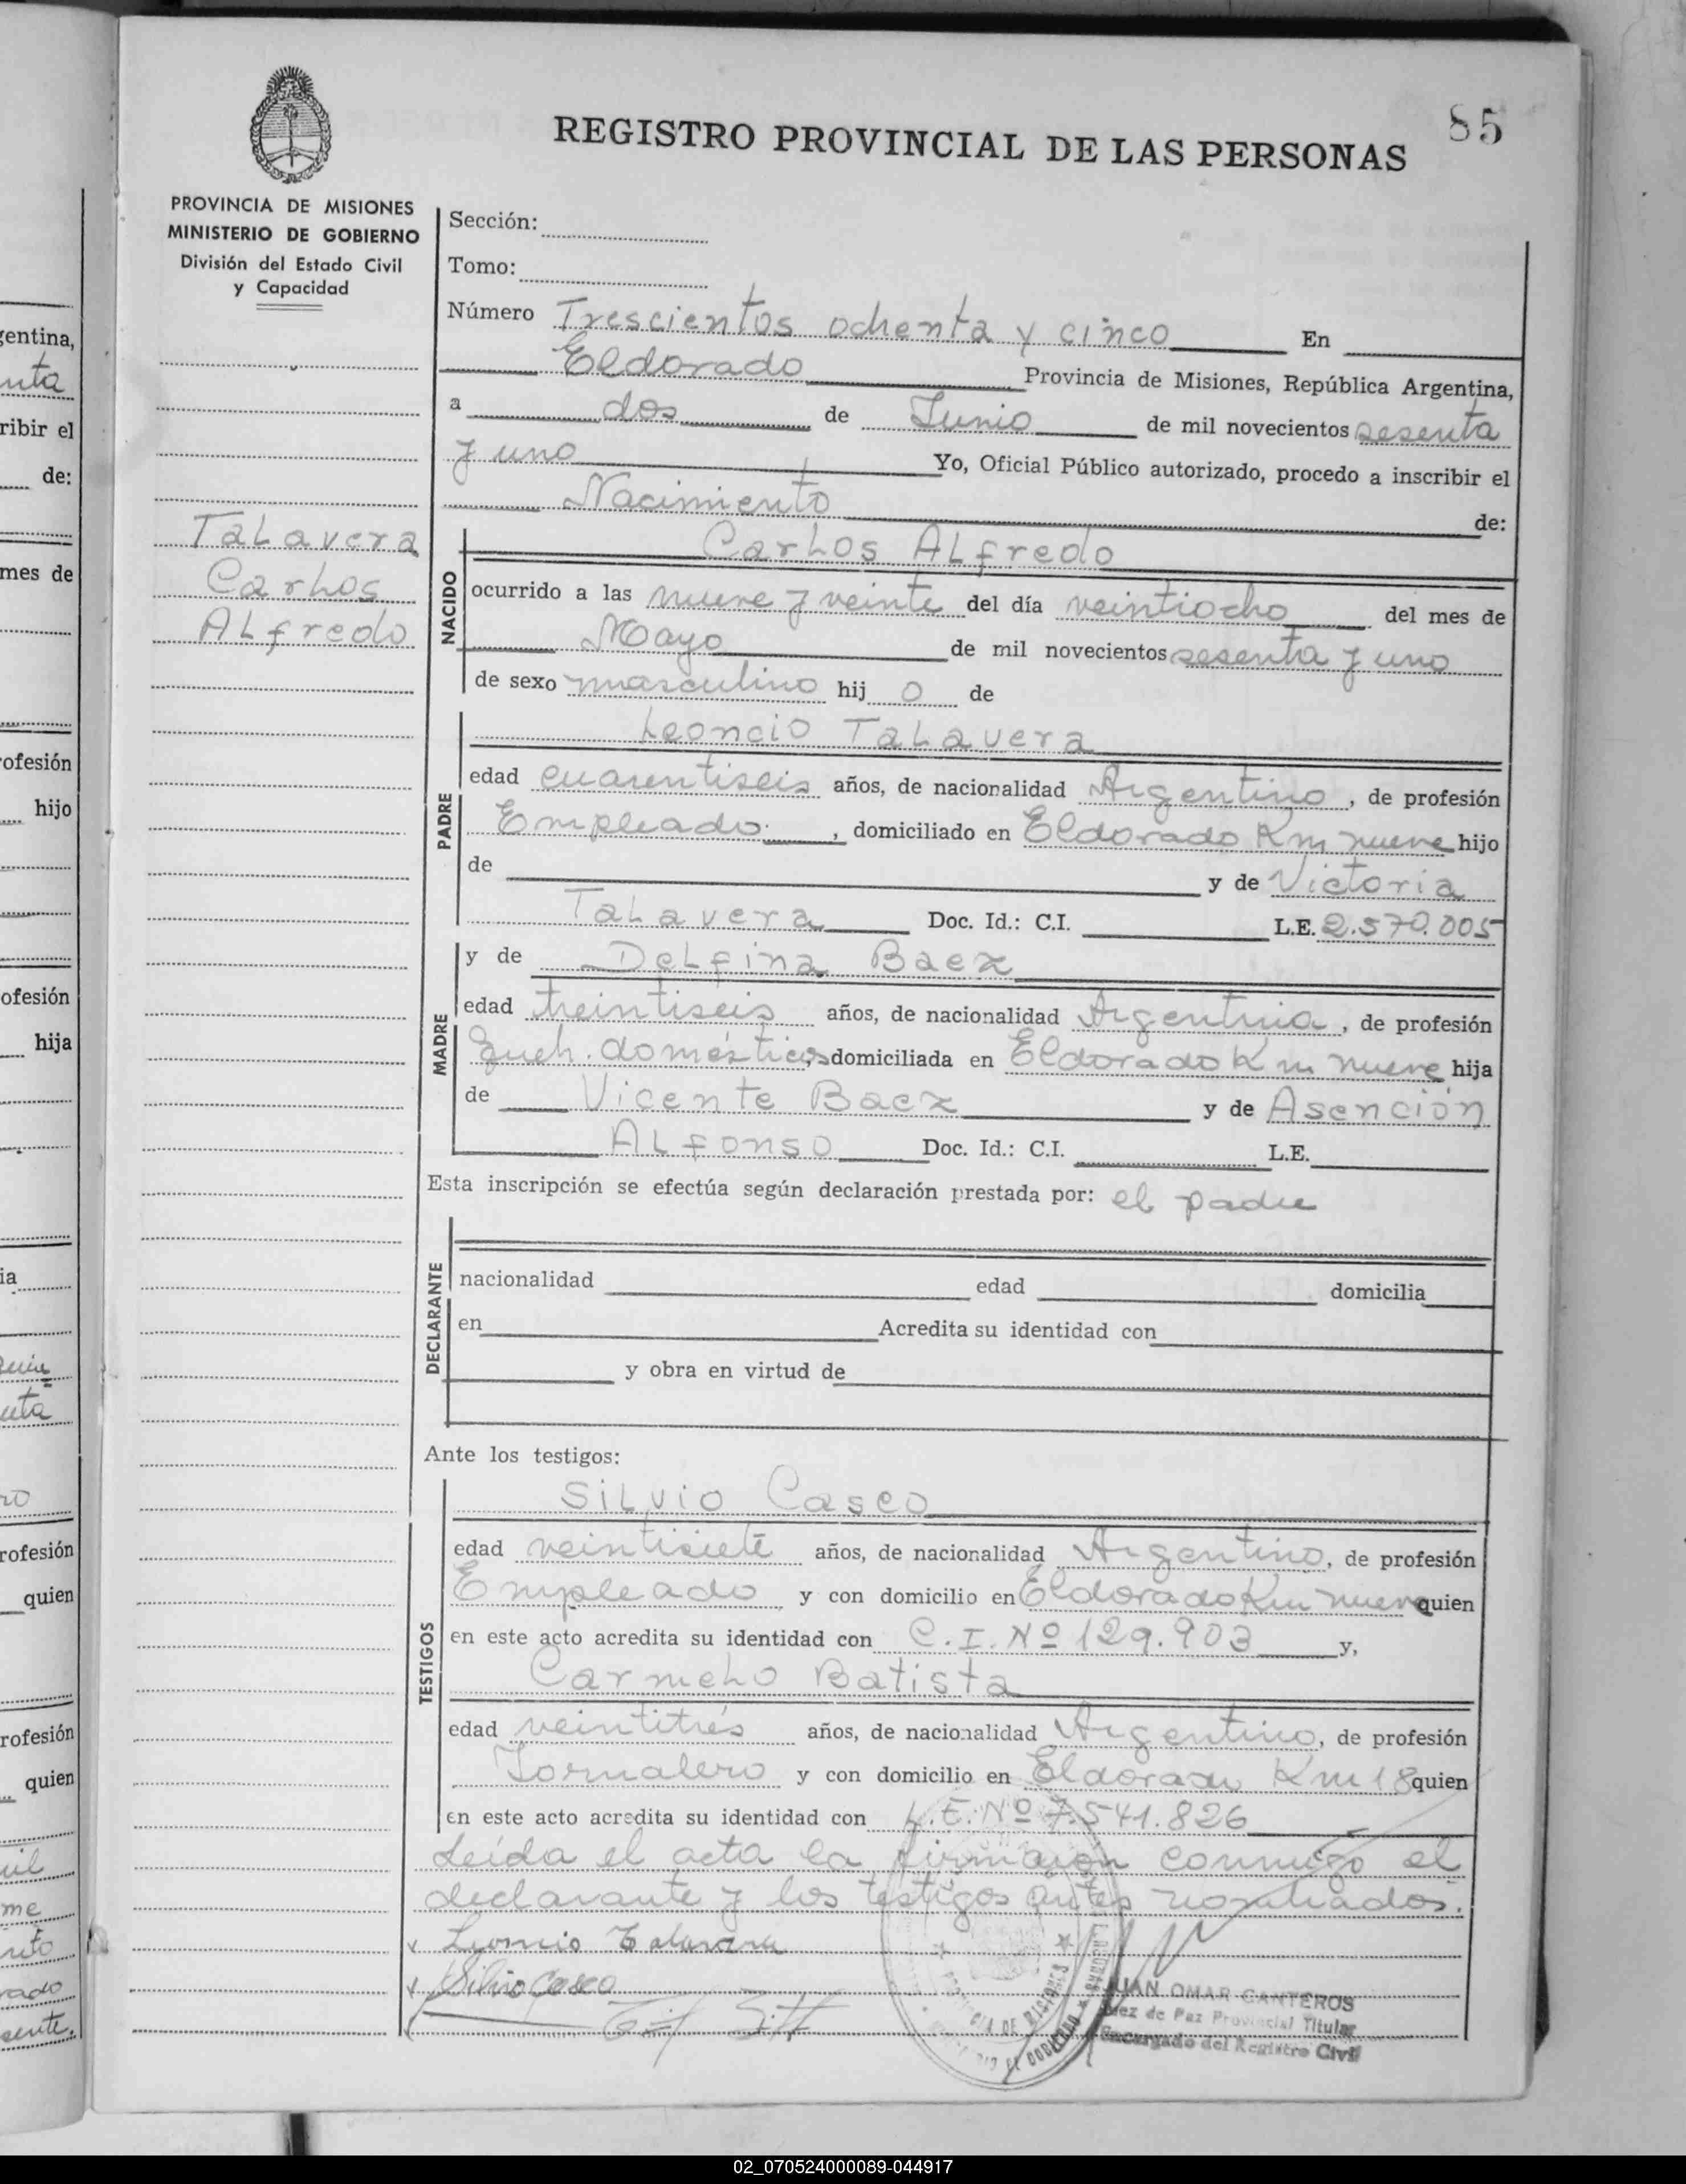 85
REGISTRO PROVINCIAL DE LAS PERSONAS
PROVINCIA DE MISIONES
MINISTERIO DE GOBIERNO
División del Estado Civil
y Capacidad
Talavera
Carlos
Alfredo
Sección:
Tomo:
Número Trescientos ochenta y cinco En
Eldorado Provincia de Misiones, República Argentina,
a dos de Junio de mil novecientos sesenta
y uno Yo, Oficial Público autorizado, procedo a inscribir el
Nacimiento de:
NACIDO
Carlos Alfredo
ocurrido a las nueve y veinte del día veintiocho del mes de
Mayo de mil novecientos sesenta y uno
de sexo masculino hij o de
PADRE
Leoncio Talavera
edad cuarentiseis años, de nacionalidad Argentino, de profesión
Empleado, domiciliado en Eldorado Km nueve hijo
de y de Victoria
Talavera Doc. Id.: C.I. L.E. 2.570.005
MADRE
y de Delfina Baez
edad treintiseis años, de nacionalidad Argentina, de profesión
Queh. domésticos, domiciliada en Eldorado Km nueve hija
de Vicente Baez y de Asención
Alfonso Doc. Id.: C.I. L.E.
Esta inscripción se efectúa según declaración prestada por: el padre
DECLARANTE
nacionalidad edad domicilia
en Acredita su identidad con
y obra en virtud de
Ante los testigos:
TESTIGOS
Silvio Casco
edad veintisiete años, de nacionalidad Argentino, de profesión
Empleado y con domicilio en Eldorado Km nueve quien
en este acto acredita su identidad con C.I. Nº 129.903 y,
Carmelo Batista
edad veintitrés años, de nacionalidad Argentino, de profesión
Jornalero y con domicilio en Eldorado Km 18 quien
en este acto acredita su identidad con L.E. Nº 7.541.826
Leída el acta la firmaron conmigo el
declarante y los testigos antes nombrados.
Leoncio Talavera
Silvio Casco
JUAN OMAR CANTEROS
Juez de Paz Provincial Titular
Encargado del Registro Civil
02_070524000089-044917